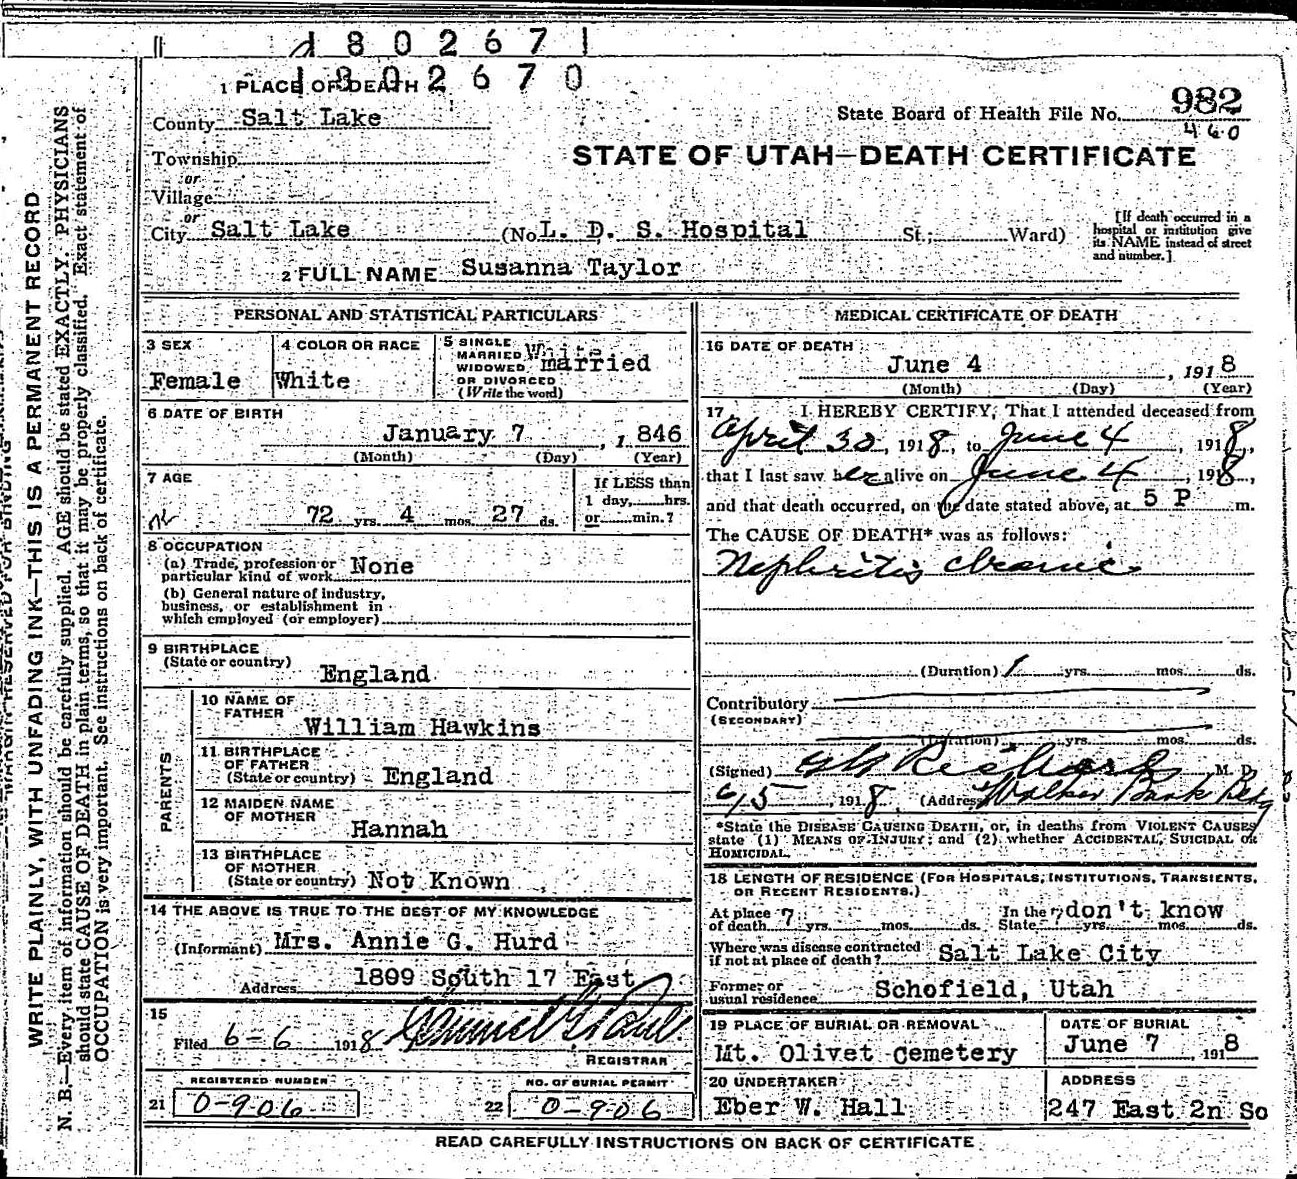 1802671
1802670
1 PLACE OF DEATH
County Salt Lake
State Board of Health File No. 982
460
Township
or
Village
or
STATE OF UTAH—DEATH CERTIFICATE
City Salt Lake (No. L. D. S. Hospital St.; Ward)
[If death occurred in a
hospital or institution give
its NAME instead of street
and number.]
2 FULL NAME Susanna Taylor
PERSONAL AND STATISTICAL PARTICULARS
3 SEX
Female
4 COLOR OR RACE
White
5 SINGLE
MARRIED
WIDOWED
OR DIVORCED
(Write the word)
married
6 DATE OF BIRTH
January 7, 1 846
(Month) (Day) (Year)
7 AGE
72 yrs. 4 mos. 27 ds.
If LESS than
1 day, hrs.
or min.?
8 OCCUPATION
(a) Trade, profession or
particular kind of work None
(b) General nature of industry,
business, or establishment in
which employed (or employer)
9 BIRTHPLACE
(State or country)
England
PARENTS
10 NAME OF
FATHER
William Hawkins
11 BIRTHPLACE
OF FATHER
(State or country) England
12 MAIDEN NAME
OF MOTHER
Hannah
13 BIRTHPLACE
OF MOTHER
(State or country) Not Known
14 THE ABOVE IS TRUE TO THE BEST OF MY KNOWLEDGE
(Informant) Mrs. Annie G. Hurd
Address 1809 South 17 East
15
Filed 6-6 1918
REGISTRAR
REGISTERED NUMBER
21 0-906
NO. OF BURIAL PERMIT
22 0-906
MEDICAL CERTIFICATE OF DEATH
16 DATE OF DEATH
June 4, 1918
(Month) (Day) (Year)
17 I HEREBY CERTIFY, That I attended deceased from
April 30, 1918, to June 4, 1918,
that I last saw her alive on June 4, 1918,
and that death occurred, on the date stated above, at 5 P m.
The CAUSE OF DEATH* was as follows:
Nephritis chronic
(Duration) 1 yrs. mos. ds.
Contributory
(SECONDARY)
(Duration) yrs. mos. ds.
(Signed) Richards M. D.
6/5, 1918 (Address) Walker Bank Bldg
*State the DISEASE CAUSING DEATH, or, in deaths from VIOLENT CAUSES
state (1) MEANS OF INJURY; and (2) whether ACCIDENTAL, SUICIDAL OR
HOMICIDAL.
18 LENGTH OF RESIDENCE (FOR HOSPITALS, INSTITUTIONS, TRANSIENTS,
OR RECENT RESIDENTS.)
At place
of death 7 yrs. mos. ds. In the State ? don't know yrs. mos. ds.
Where was disease contracted
if not at place of death? Salt Lake City
Former or
usual residence Schofield, Utah
19 PLACE OF BURIAL OR REMOVAL
Mt. Olivet Cemetery
DATE OF BURIAL
June 7, 1918
20 UNDERTAKER
Eber W. Hall
ADDRESS
247 East 2n So
READ CAREFULLY INSTRUCTIONS ON BACK OF CERTIFICATE
MARGIN RESERVED FOR BINDING
WRITE PLAINLY, WITH UNFADING INK—THIS IS A PERMANENT RECORD
N. B.—Every item of information should be carefully supplied. AGE should be stated EXACTLY. PHYSICIANS
should state CAUSE OF DEATH in plain terms, so that it may be properly classified. Exact statement of
OCCUPATION is very important. See instructions on back of certificate.